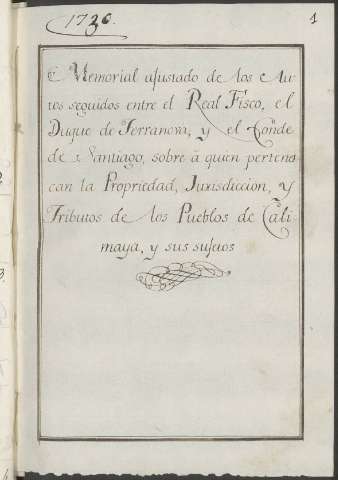 1736.
1
Memorial ajustado de los Au-
tos seguidos entre el Real Fisco, el
Duque de Terranova, y el Conde
de Santiago, sobre à quien pertenes
can la Propriedad, Jurisdiccion, y
Tributos de los Pueblos de Cali-
maya, y sus sujetos